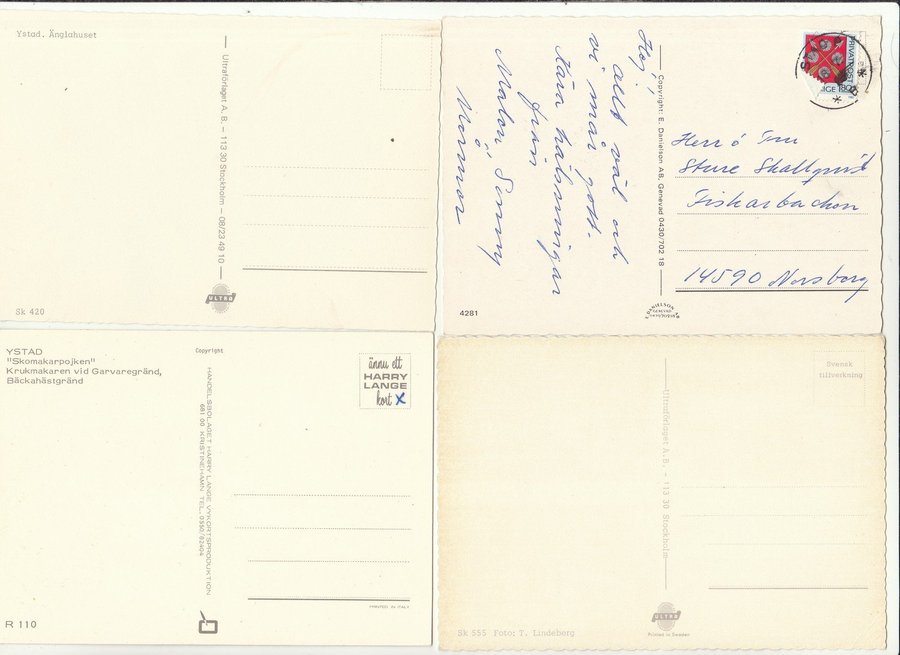 Ystad. Änglahuset
Ultraförlaget A. B. – 113 30 Stockholm – 08/23 49 10
ULTRA
Sk 420
Hej!
allt väl och
vi mår gott.
Kära hälsningar
från
Malon, Sonny
o
Mormor
Copyright: E. Danielson AB, Genevad 0430/702 18
PRIVATPOST
Herr o Fru
Sture Skallqvist
Fiskarbacken
14590 Norsborg
4281
E. DANIELSON AB
GENEVAD
0430/70218
YSTAD
"Skomakarpojken"
Krukmakaren vid Garvaregränd,
Bäckahästgränd
Copyright
HANDELSBOLAGET HARRY LANGE VYKORTSPRODUKTION
681 00 KRISTINEHAMN TEL. 0550/82404
ännu ett
HARRY
LANGE
kort X
PRINTED IN ITALY
R 110
Svensk
tillverkning
Ultraförlaget A. B. – 113 30 Stockholm
ULTRA
Printed in Sweden
Sk 555 Foto: T. Lindeberg